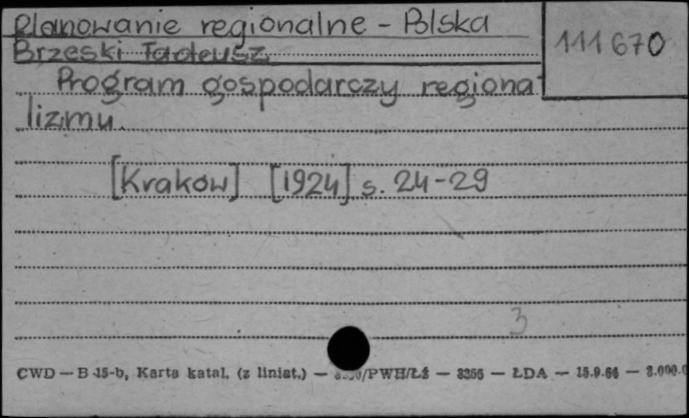 Planowanie regionalne - Polska
111670
Brzeski Tadeusz
Program gospodarczy regiona
lizmu.
[Kraków] [1924] s. 24-29
3
CWD — B 15-b, Karta katal. (z liniat.) — /PWH/Łź — 3256 — ŁDA — 15.9.66 — 3.000.0